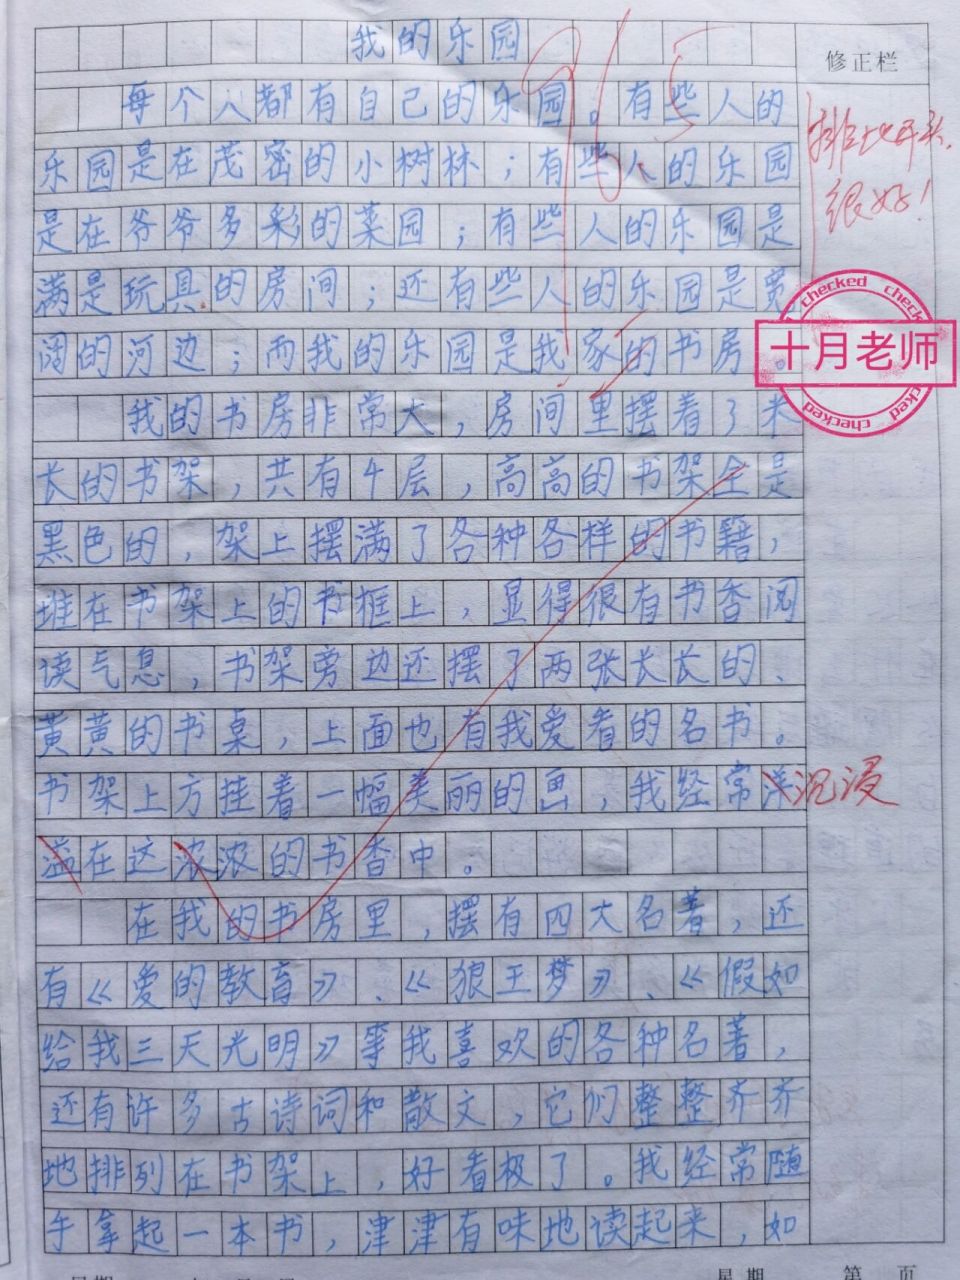 我的乐园
95
修正栏
每个人都有自己的乐园。有些人的
排比开头,
乐园是在茂密的小树林；有些人的乐园
很好!
是在爷爷多彩的菜园；有些人的乐园是
满是玩具的房间；还有些人的乐园是宽
checked checked
阔的河边；而我的乐园是我家的书房。
十月老师
checked
我的书房非常大，房间里摆着了米
长的书架，共有4层，高高的书架全是
黑色的，架上摆满了各种各样的书籍，
堆在书架上的书框上，显得很有书香阅
读气息，书架旁边还摆了两张长长的、
黄黄的书桌，上面也有我爱看的名书。
书架上方挂着一幅美丽的画，我经常洋
沉浸
溢在这浓浓的书香中。
在我的书房里，摆有四大名著，还
有《爱的教育》、《狼王梦》、《假如
给我三天光明》等我喜欢的各种名著，
还有许多古诗词和散文，它们整整齐齐
地排列在书架上，好看极了。我经常随
手拿起一本书，津津有味地读起来，如
星期
第 页